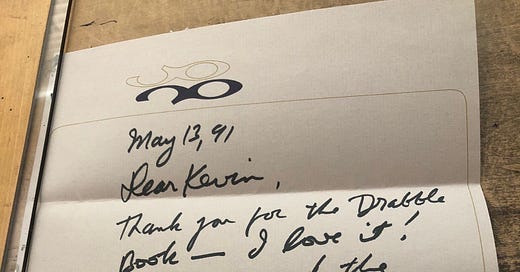 May 13, 91
Dear Kevin,
Thank you for the Drabble
Book — I love it!
the